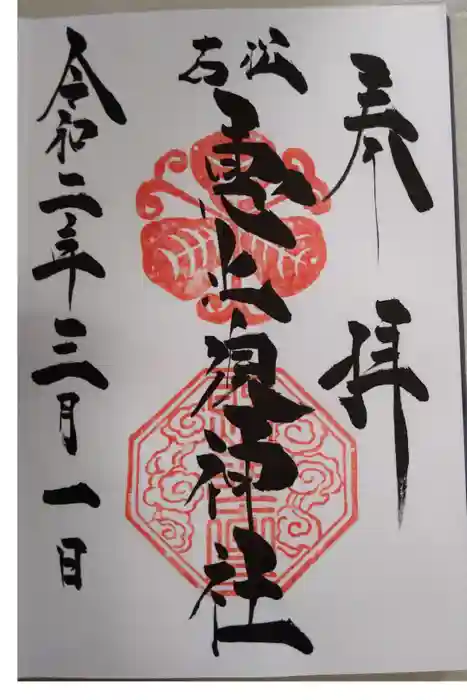 奉拝
若松
恵比須神社
令和二年三月一日